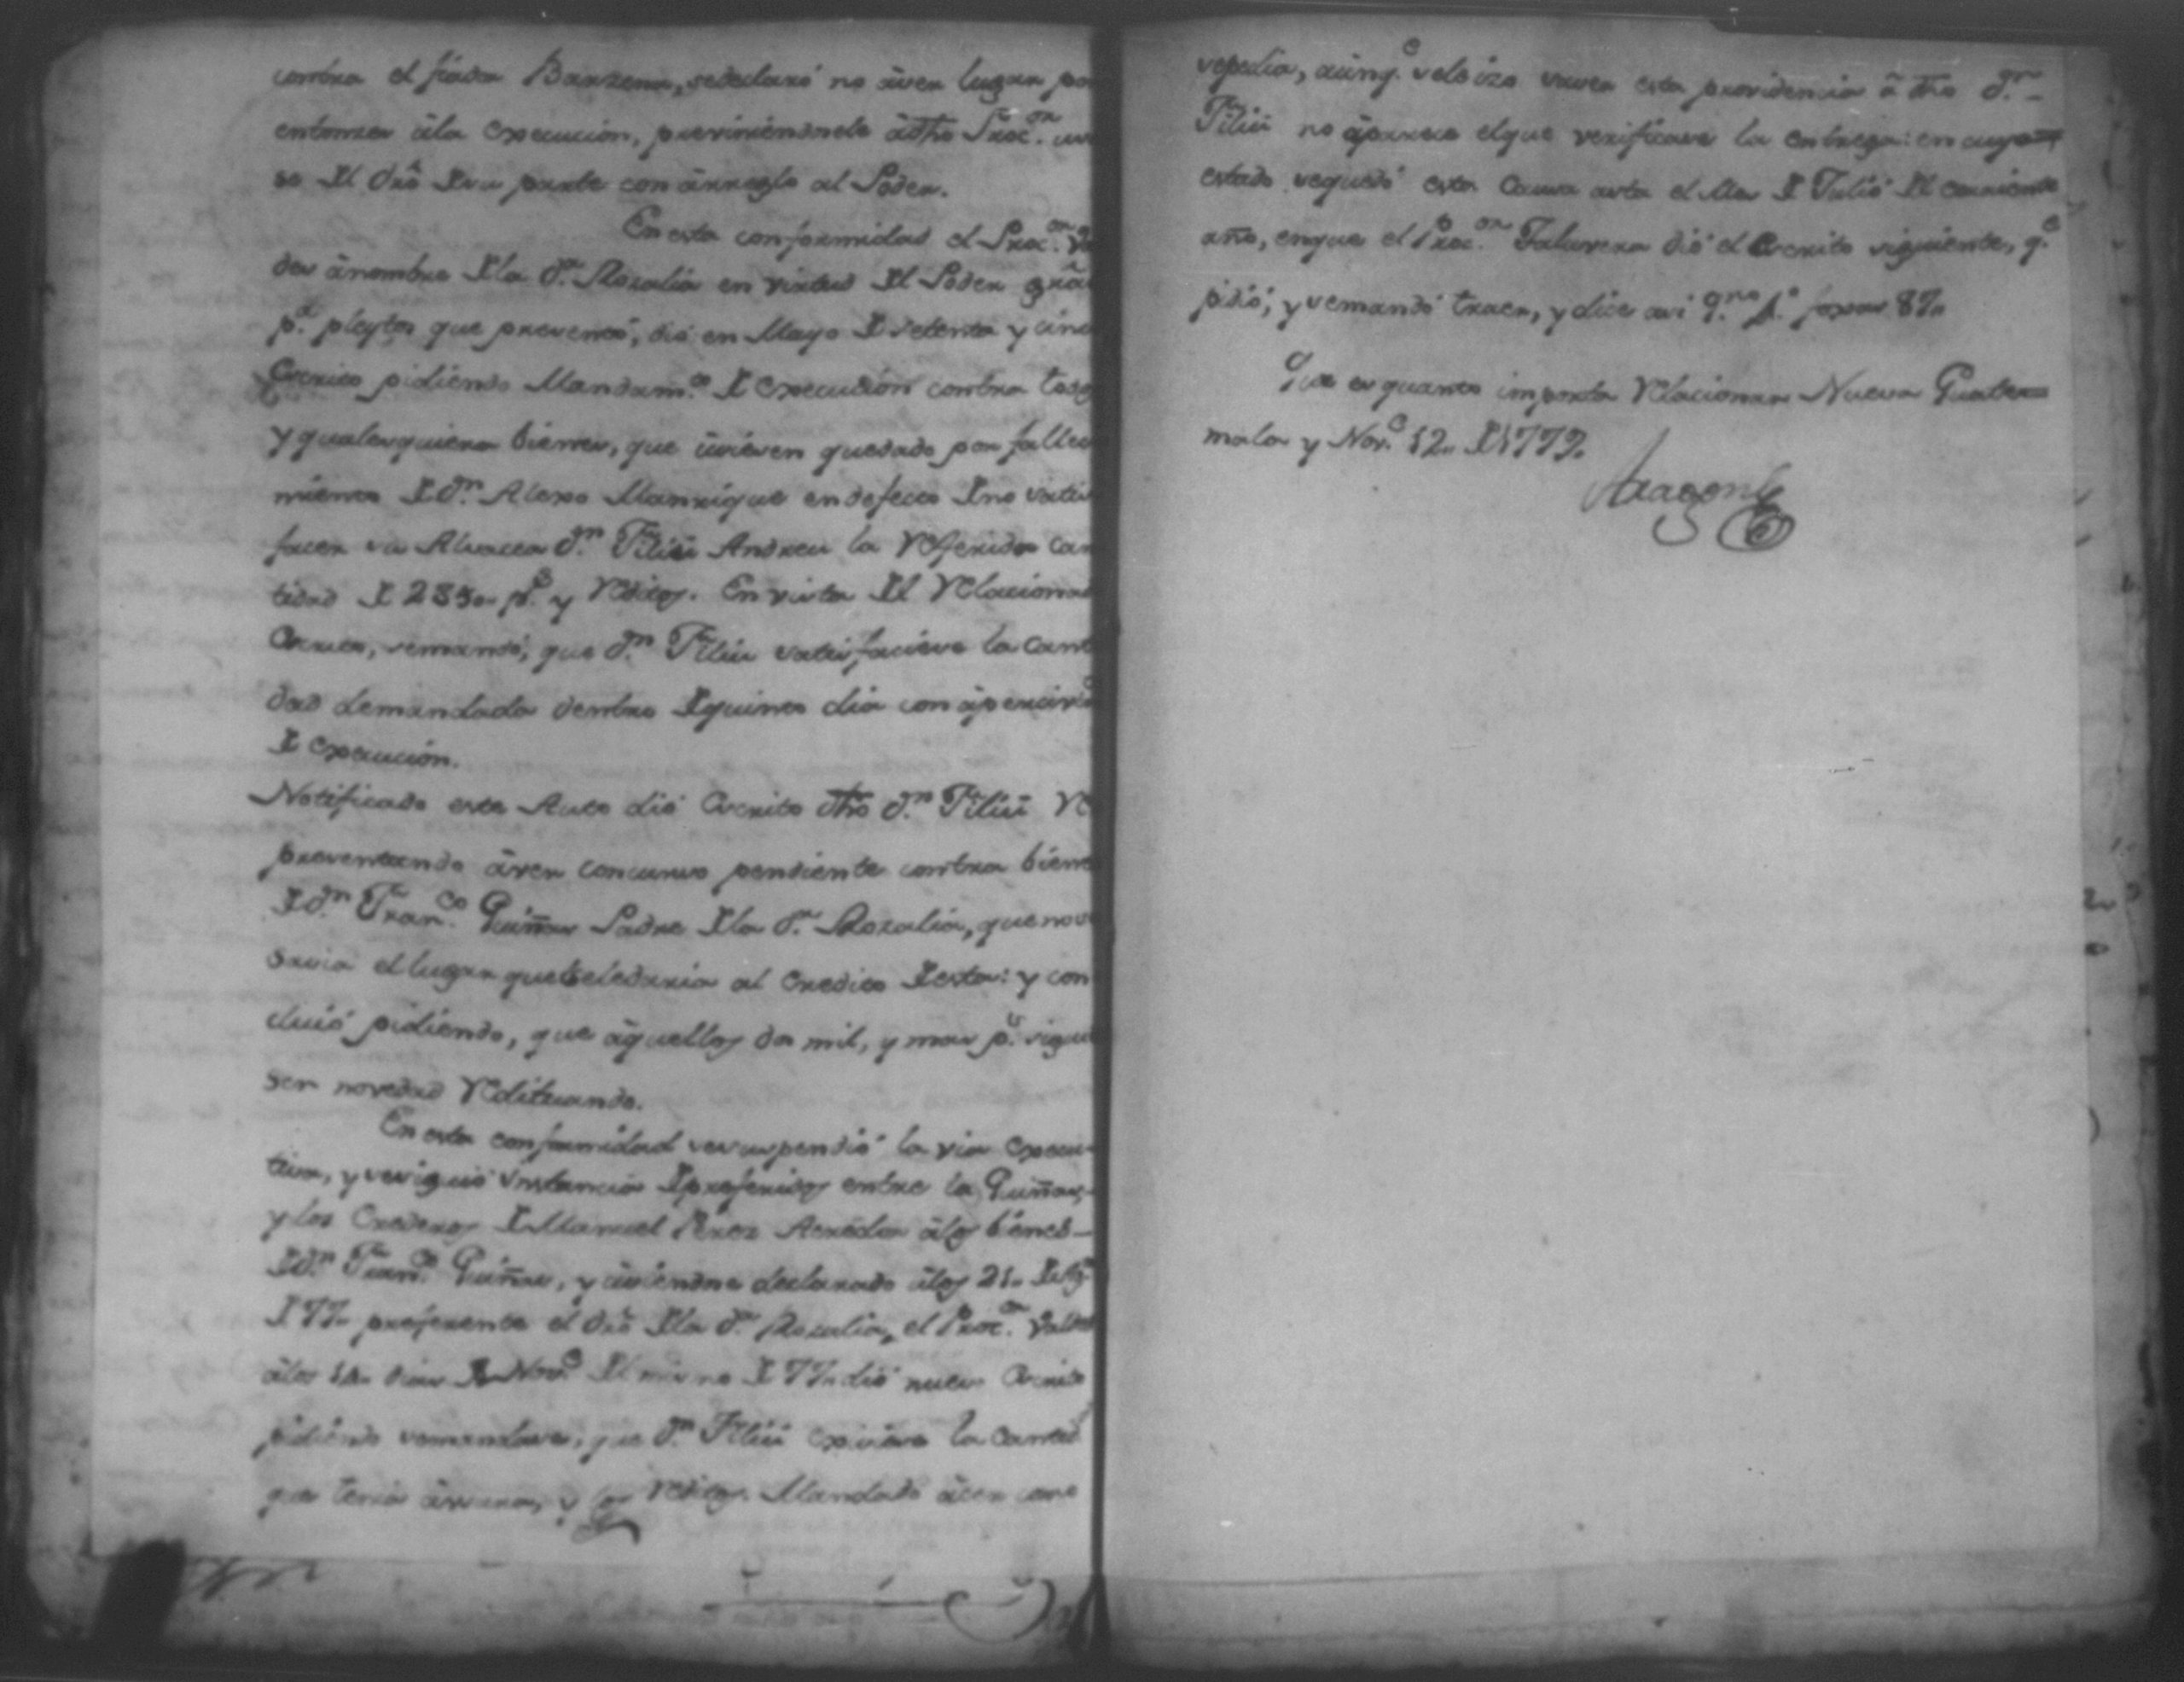 contra el fiador Barzena, sedeclaró no aver lugar por
entonces âla execucion, previniendosele âdho Proc.or usa
se del dro desu parte con ârreglo al Poder.
En esta conformidad el Proc.or
der ânombre dela d.a Rosalia en virtud del Poder grãl
p.a pleytos que presentó, dió en Mayo de setenta y cinco
Escrito pidiendo Mandam.to de execucion contra todos
y qualesquiera bienes, que uviesen quedado por falleci
miento de d.n Alexo Manrique endefecto deno satis
facer su Alvacea d.n Felix Andreu la Referida can
tidad de p.s y Reditos. En vista del Relacionado
Escrito, semandó, que d.n Felix satisfaciese la canti
dad demandada dentro dequinto dia con âpercivim.to
de execucion.
Notificado este Auto dió Escrito dho d.n Felix Re
presentando âver concurso pendiente contra bienes
de d.n Fran.co Guiñas Padre dela d.a Rosalia, que no
savia ellugar quesele daria al Credito deesta: y con
cluió pidiendo, que âquellos dos mil, y mas p.s sigui
sen novedad Redituando.
En esta conformidad sesuspendió la via execu-
tiva, y sesiguió Instancia depreferidos entre la Guiñas,
y los Erederos de Manuel Perez Acredor âlos bienes
de d.n Fran.co Guiñas, y âviendose declarado âlos 21.
de 77. preferente el dro dela d.a Rosalia, el Proc.or
âlos dias de Nov.e del mismo de 77. dió nuevo Escrito
pidiendo semandase, que d.n Felix exiviese la cantid.d
que tenia y los Reditos. Mandado âcer como
sepedia, âunq.e selehizo saver esta providencia â dho d.n
Felix no âparece elque verificase la entrega: en cuyo
estado sequedó esta causa asta el Mes de Julio del corriente
año, enque el Proc.or Talavera dió el Escrito siguiente, q.e
pidió, y semandó traer, y dice asi
Que es quanto importa Relacionar Nueva Guate
mala y Nov.e 12. de 1779.
Aragon